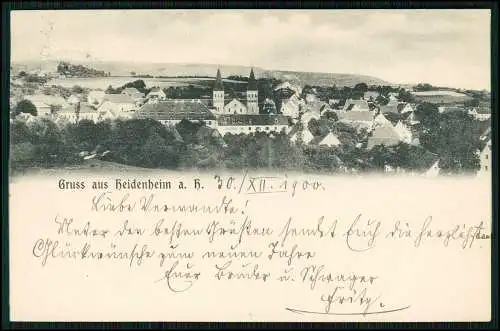 Gruss aus Heidenheim a. H. 30/XII. 1900
Liebe Verwandte!
Unter den besten Grüßen sendet Euch die herzlichsten
Glückwünsche zum neuen Jahre
Euer Bruder u. Schwager
Fritz